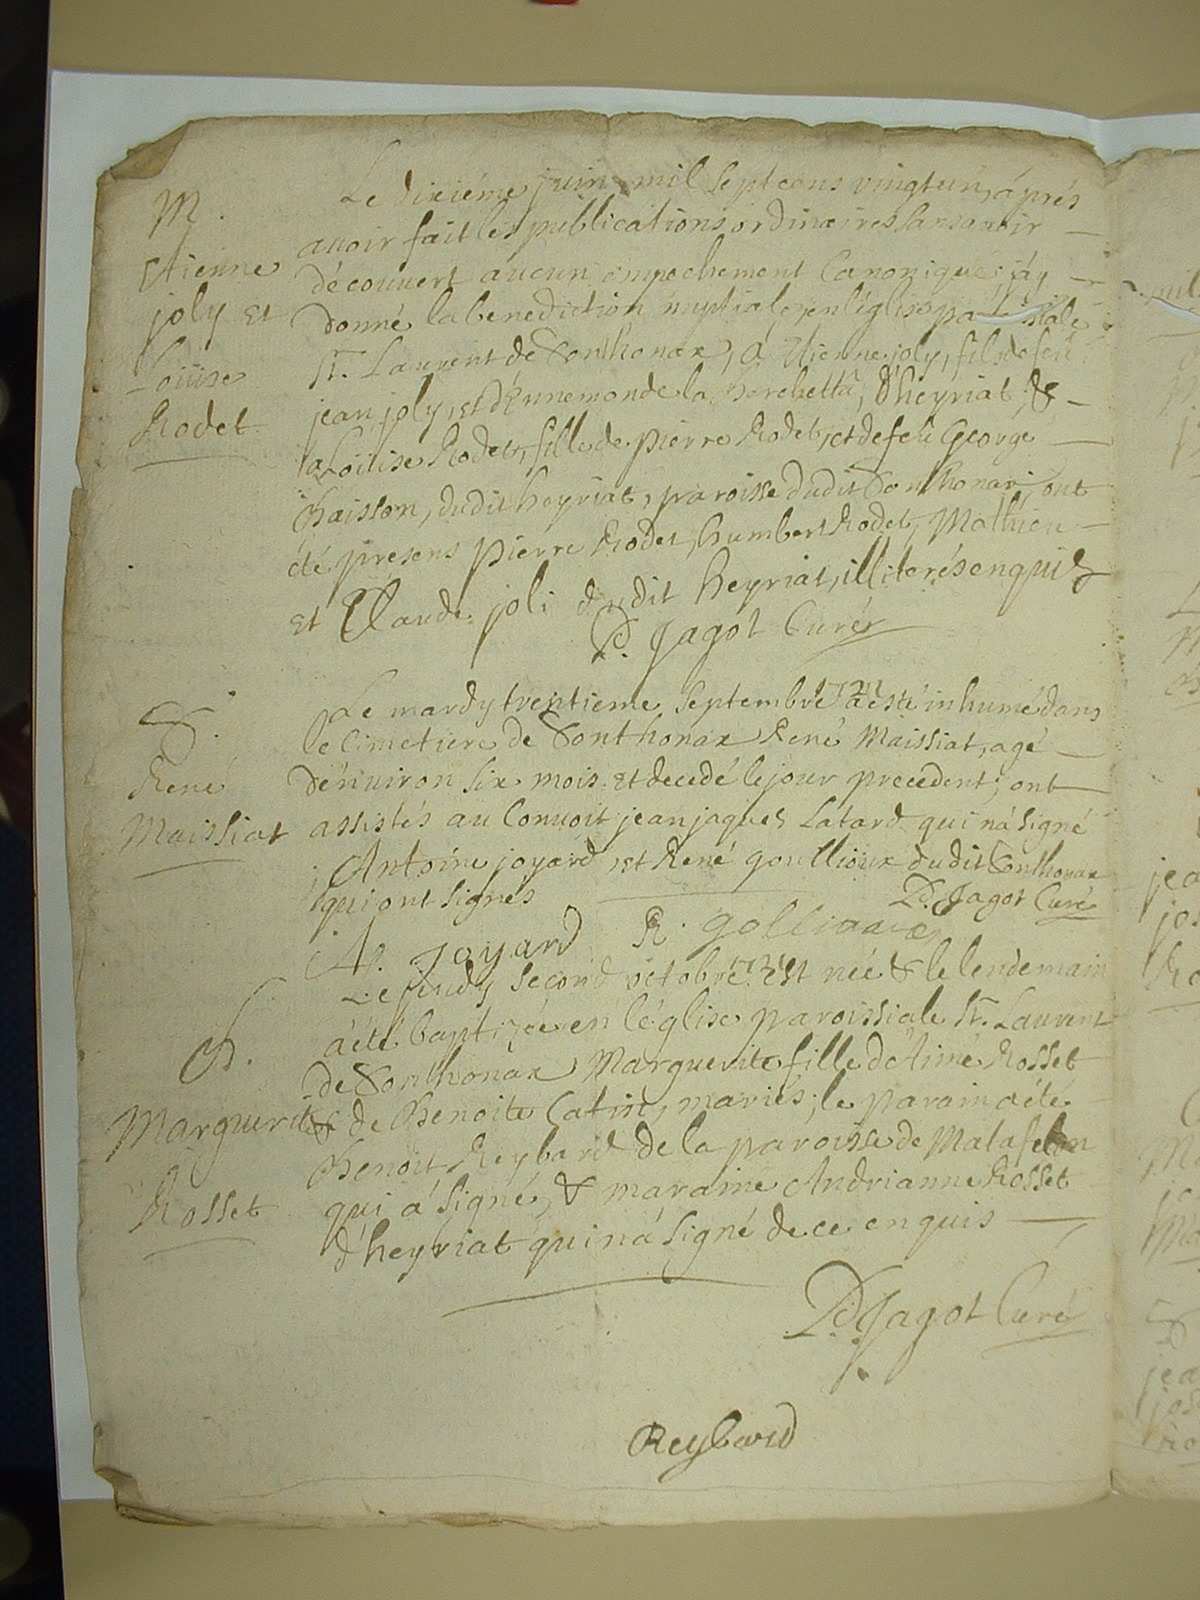 M.
Etienne
joly Et
Loüise
Rodet
Le dixiéme juin mil sept cens vingt un, áprés
auoir fait les publications ordinæires sans auoir
découuert aucun émpechement Canonique; jáy
donné la benediction nuptiale, en l'églisé paroissiale
St. Laurent de Sonthonax, á Etienne joly, fils de feu
jean joly, et d'Ennemonde la Berchetta, d'heyriat, &
a Loüise Rodet, fille de pierre Rodet, et de feüe George
Baisson, dudit heyriat, paroisse dudit Sonthonax, ont
été presens pierre Rodet, humbert Rodet, Mathieu
Et Claude joli dudit heyriat, illiterés enquis
P. Jagot Curé
S.
René
Maissiat
Le mardy trentieme Septembre 1721 a esté inhumé dans
le Cimetiere de Sonthonax René Maissiat, agé
d'énuiron six mois Et decedé le jour precedent; ont
assistés au Conuoit jean jaques Latard qui n'á signé
Antoine joyard, et René goullioux dudit Sonthonax
qui ont signés
Pd. Jagot Curé
A. Joyard R. golliaux
B.
Marguerite
Rosset
Le jeudy second octobre 1721 Est née & le lendemain
á été baptizée en l'église paroissiale St. Laurent
de Sonthonax Marguerite fille d'Aimé Rosset
& de Benoite Catin, mariés; le parain a été
Benoit Reybard de la paroisse de Matafelon
qui á signé, & maraine Andrianne Rosset
d'heyriat qui n'á signé de ce enquis
Pd. Jagot Curé
Reybard